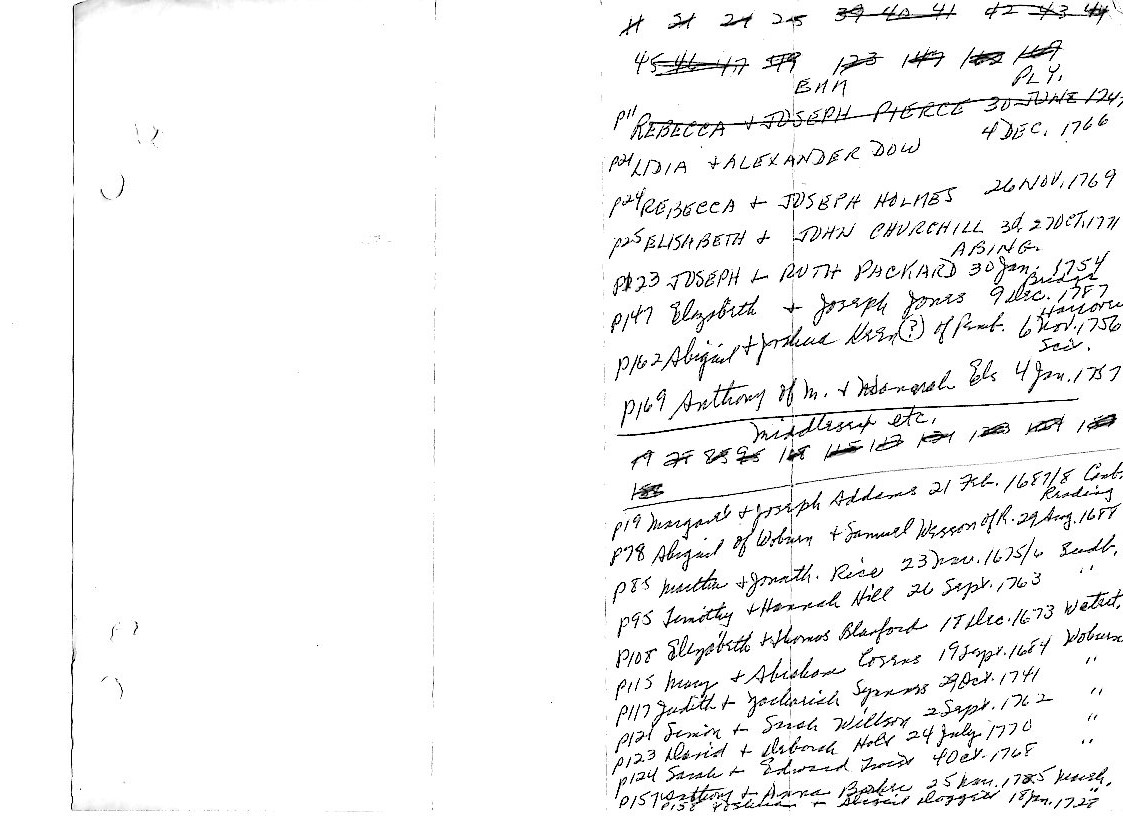 11 21 24 25 39 40 41 42 43 44
45 46 47 123 147 162 169
PLY.
p11 REBECCA + JOSEPH PIERCE 30 JUNE
p21 LIDIA + ALEXANDER DOW 4 DEC. 1766
p24 REBECCA + JOSEPH HOLMES 26 NOV. 1769
p25 ELISABETH + JOHN CHURCHILL 3d 27 OCT. 1771
ABING.
p123 JOSEPH + RUTH PACKARD 30 Jan. 1754
p147 Elizabeth + Joseph Jones 9 Dec. 1787
Hanover
p162 Abigail + Joshua (?) of Pemb. 6 Nov. 1756
Scit.
p169 Anthony of M. + Hannah Els 4 Jan. 1757
Middlesex etc.
19 78 85 95 108 115 117 121 123 124
p19 Margaret + Joseph Addams 21 Feb. 1687/8 Camb.
Reading
p78 Abigail of Woburn + Samuel Wesson of R. 29 Aug. 1688
p85 Martha + Jonath. Rice 23 1675/6 Sudb.
p95 Timothy + Hannah Hill 26 Sept. 1763 "
p108 Elizabeth + Thomas Blanford 18 Dec. 1673 Watert.
p115 Mary + Abraham Cosens 19 Sept. 1684 Woburn
p117 Judith + Zachariah Symmes 29 Oct. 1741 "
p121 Simon + Sarah Willson 2 Sept. 1762 "
p123 David + Deborah Holt 24 July 1770 "
p124 Sarah + Edward 4 Oct. 1768 "
p157 Anthony + Anna 25 1785 Marsh.
p158 + Abigail Doggett 18 Jan. 1728 "